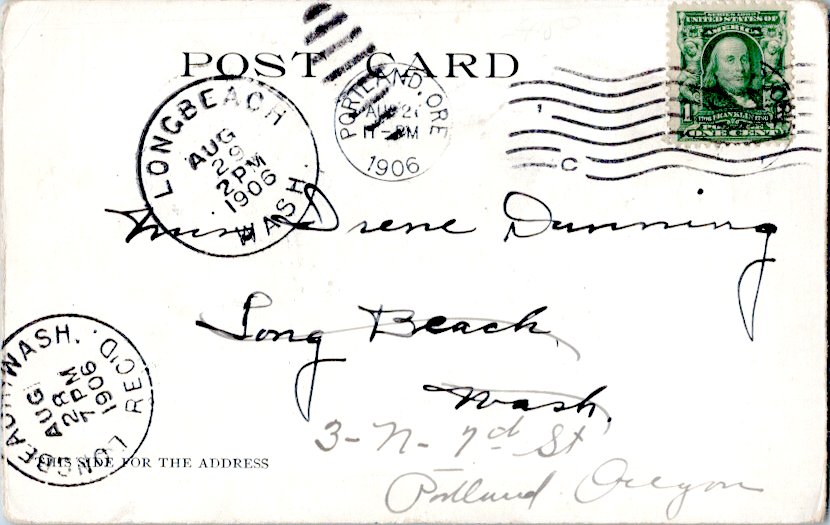 POST CARD
SERIES 1902
UNITED STATES OF
AMERICA
1
1706 FRANKLIN 1790
POSTAGE
ONE CENT
PORTLAND, ORE
AUG 2
11-PM
1906
1
C
LONGBEACH
AUG
29
2PM
1906
WASH
Miss Irene Dunning
Long Beach
Wash.
3-N-7d St
Portland Oregon
WASH. REC'D.
AUG
28
7PM
1906
THIS SIDE FOR THE ADDRESS